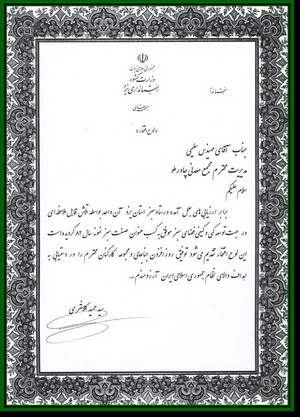 جمهوری اسلامی ایران
وزارت کشور
استانداری یزد
لوح افتخار
جناب آقای مهندس سلیمی
مدیریت محترم مجتمع معدنی چادرملو
سلام علیکم
برابر ارزیابی‌های بعمل آمده در ستاد سبز استان یزد آن واحد بواسطه تلاش قابل ملاحظه‌ای
در جهت توسعه کمی و کیفی فضای سبز موفق به کسب عنوان صنعت سبز نمونه سال ۸۲ گردیده است
این لوح افتخار تقدیم می شود توفیق روز افزون جنابعالی و مجموعه کارکنان محترم را در دستیابی به
اهداف والای نظام جمهوری اسلامی ایران آرزومندم.
سید حمید کلانتری